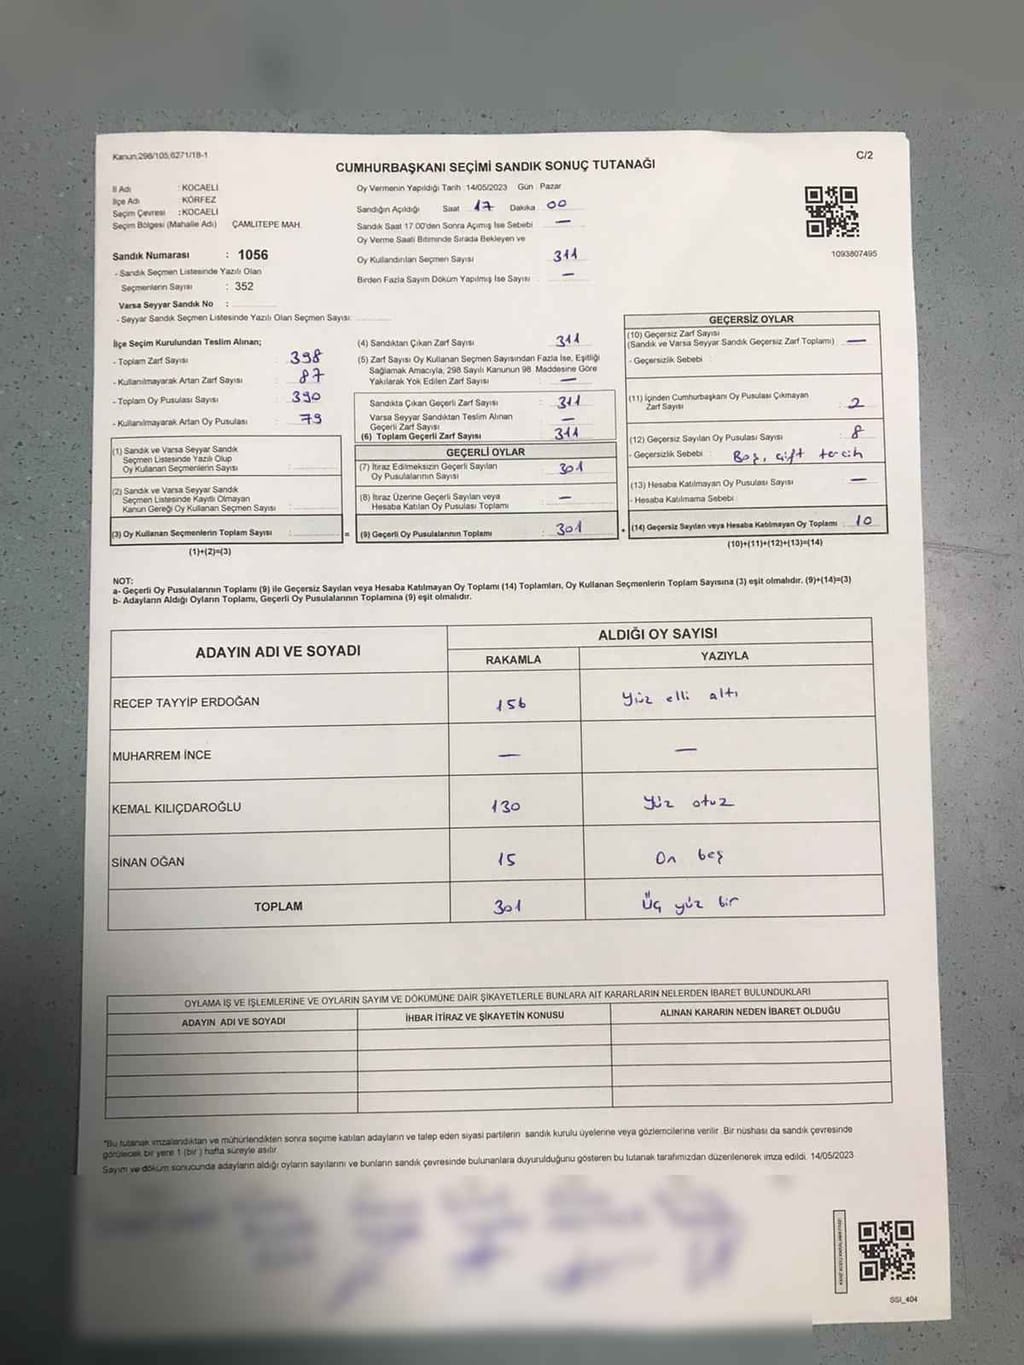 Kanun:298/105,6271/18-1
C/2
CUMHURBAŞKANI SEÇİMİ SANDIK SONUÇ TUTANAĞI
İl Adı : KOCAELİ
İlçe Adı : KÖRFEZ
Seçim Çevresi : KOCAELİ
Seçim Bölgesi (Mahalle Adı) ÇAMLITEPE MAH.
Sandık Numarası : 1056
- Sandık Seçmen Listesinde Yazılı Olan
Seçmenlerin Sayısı : 352
Varsa Seyyar Sandık No :
- Seyyar Sandık Seçmen Listesinde Yazılı Olan Seçmen Sayısı:
Oy Vermenin Yapıldığı Tarih :14/05/2023 Gün : Pazar
Sandığın Açıldığı Saat 17 Dakika 00
Sandık Saat 17.00'den Sonra Açımış İse Sebebi —
Oy Verme Saati Bitiminde Sırada Bekleyen ve
Oy Kullandırılan Seçmen Sayısı 311
Birden Fazla Sayım Döküm Yapılmış İse Sayısı : —
1093807495
İlçe Seçim Kurulundan Teslim Alınan;
- Toplam Zarf Sayısı : 398
- Kullanılmayarak Artan Zarf Sayısı : 87
- Toplam Oy Pusulası Sayısı : 390
- Kullanılmayarak Artan Oy Pusulası : 79
(1) Sandık ve Varsa Seyyar Sandık
Seçmen Listesinde Yazılı Olup
Oy Kullanan Seçmenlerin Sayısı :
(2) Sandık ve Varsa Seyyar Sandık
Seçmen Listesinde Kayıtlı Olmayan
Kanun Gereği Oy Kullanan Seçmen Sayısı :
(3) Oy Kullanan Seçmenlerin Toplam Sayısı :
(1)+(2)=(3)
(4) Sandıktan Çıkan Zarf Sayısı : 311
(5) Zarf Sayısı Oy Kullanan Seçmen Sayısından Fazla İse, Eşitliği
Sağlamak Amacıyla, 298 Sayılı Kanunun 98. Maddesine Göre
Yakılarak Yok Edilen Zarf Sayısı : —
Sandıkta Çıkan Geçerli Zarf Sayısı : 311
Varsa Seyyar Sandıktan Teslim Alınan
Geçerli Zarf Sayısı : —
(6) Toplam Geçerli Zarf Sayısı : 311
GEÇERLİ OYLAR
(7) İtiraz Edilmeksizin Geçerli Sayılan
Oy Pusulalarının Sayısı : 301
(8) İtiraz Üzerine Geçerli Sayılan veya
Hesaba Katılan Oy Pusulası Toplamı : —
= (9) Geçerli Oy Pusulalarının Toplamı : 301
GEÇERSİZ OYLAR
(10) Geçersiz Zarf Sayısı
(Sandık ve Varsa Seyyar Sandık Geçersiz Zarf Toplamı) : —
- Geçersizlik Sebebi :
(11) İçinden Cumhurbaşkanı Oy Pusulası Çıkmayan
Zarf Sayısı : 2
(12) Geçersiz Sayılan Oy Pusulası Sayısı : 8
- Geçersizlik Sebebi : Boş, çift tercih
(13) Hesaba Katılmayan Oy Pusulası Sayısı : —
- Hesaba Katılmama Sebebi :
+ (14) Geçersiz Sayılan veya Hesaba Katılmayan Oy Toplamı : 10
(10)+(11)+(12)+(13)=(14)
NOT:
a- Geçerli Oy Pusulalarının Toplamı (9) ile Geçersiz Sayılan veya Hesaba Katılmayan Oy Toplamı (14) Toplamları, Oy Kullanan Seçmenlerin Toplam Sayısına (3) eşit olmalıdır. (9)+(14)=(3)
b- Adayların Aldığı Oyların Toplamı, Geçerli Oy Pusulalarının Toplamına (9) eşit olmalıdır.
ADAYIN ADI VE SOYADI
ALDIĞI OY SAYISI
RAKAMLA YAZIYLA
RECEP TAYYİP ERDOĞAN 156 Yüz elli altı
MUHARREM İNCE — —
KEMAL KILIÇDAROĞLU 130 Yüz otuz
SİNAN OĞAN 15 On beş
TOPLAM 301 Üç yüz bir
OYLAMA İŞ VE İŞLEMLERİNE VE OYLARIN SAYIM VE DÖKÜMÜNE DAİR ŞİKAYETLERLE BUNLARA AİT KARARLARIN NELERDEN İBARET BULUNDUKLARI
ADAYIN ADI VE SOYADI İHBAR İTİRAZ VE ŞİKAYETİN KONUSU ALINAN KARARIN NEDEN İBARET OLDUĞU
*Bu tutanak imzalandıktan ve mühürlendikten sonra seçime katılan adayların ve talep eden siyasi partilerin sandık kurulu üyelerine veya gözlemcilerine verilir. Bir nüshası da sandık çevresinde
görülecek bir yere 1 (bir ) hafta süreyle asılır.
Sayım ve döküm sonucunda adayların aldığı oyların sayılarını ve bunların sandık çevresinde bulunanlara duyurulduğunu gösteren bu tutanak tarafımızdan düzenlenerek imza edildi. 14/05/2023
SSI_404